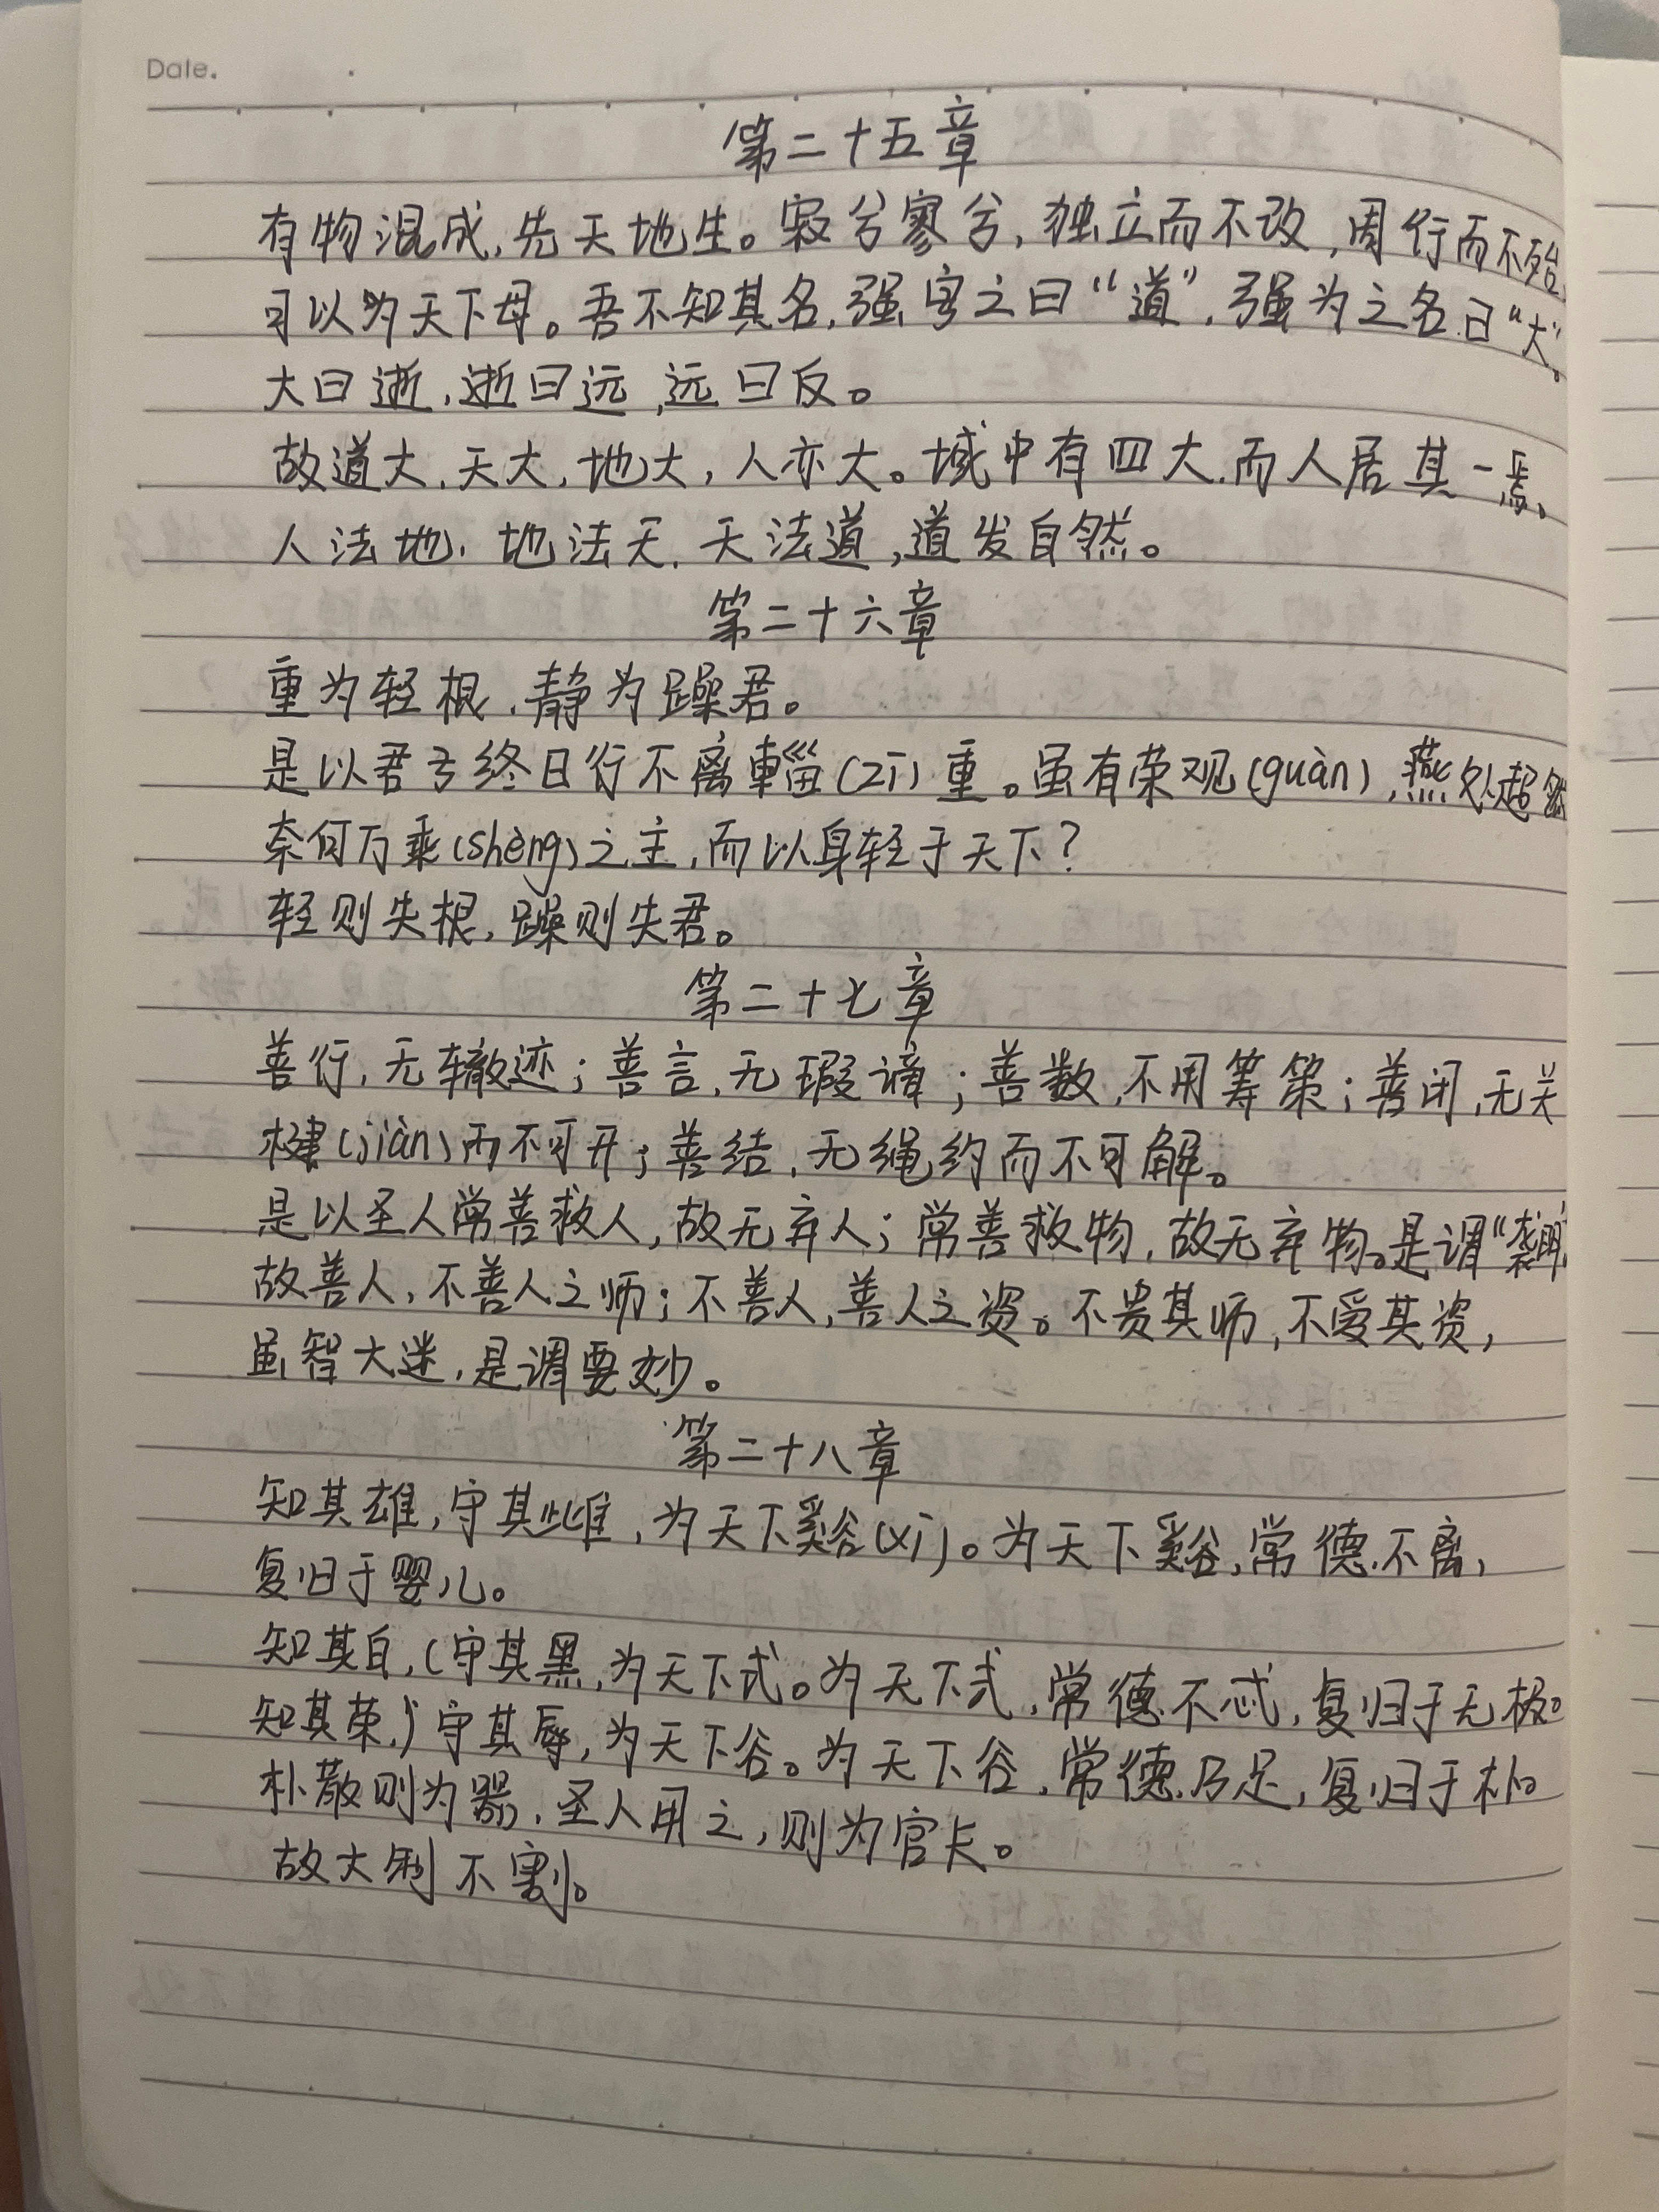 Date.
第二十五章
有物混成,先天地生。寂兮寥兮,独立而不改,周行而不殆,
可以为天下母。吾不知其名,强字之曰“道”,强为之名曰“大”。
大曰逝,逝曰远,远曰反。
故道大,天大,地大,人亦大。域中有四大,而人居其一焉。
人法地,地法天,天法道,道发自然。
第二十六章
重为轻根,静为躁君。
是以君子终日行不离輜(zī)重。虽有荣观(guàn),燕处超然
奈何万乘(shèng)之主,而以身轻于天下?
轻则失根,躁则失君。
第二十七章
善行,无辙迹;善言,无瑕谪;善数,不用筹策;善闭,无关
楗(jiàn)而不可开;善结,无绳约而不可解。
是以圣人常善救人,故无弃人;常善救物,故无弃物。是谓“袭明
故善人,不善人之师;不善人,善人之资。不贵其师,不爱其资,
虽智大迷,是谓要妙。
第二十八章
知其雄,守其雌,为天下谿(xī)。为天下谿,常德不离,
复归于婴儿。
知其白,(守其黑,为天下式。为天下式,常德不忒,复归于无极。
知其荣,)守其辱,为天下谷。为天下谷,常德乃足,复归于朴。
朴散则为器,圣人用之,则为官长。
故大制不割。